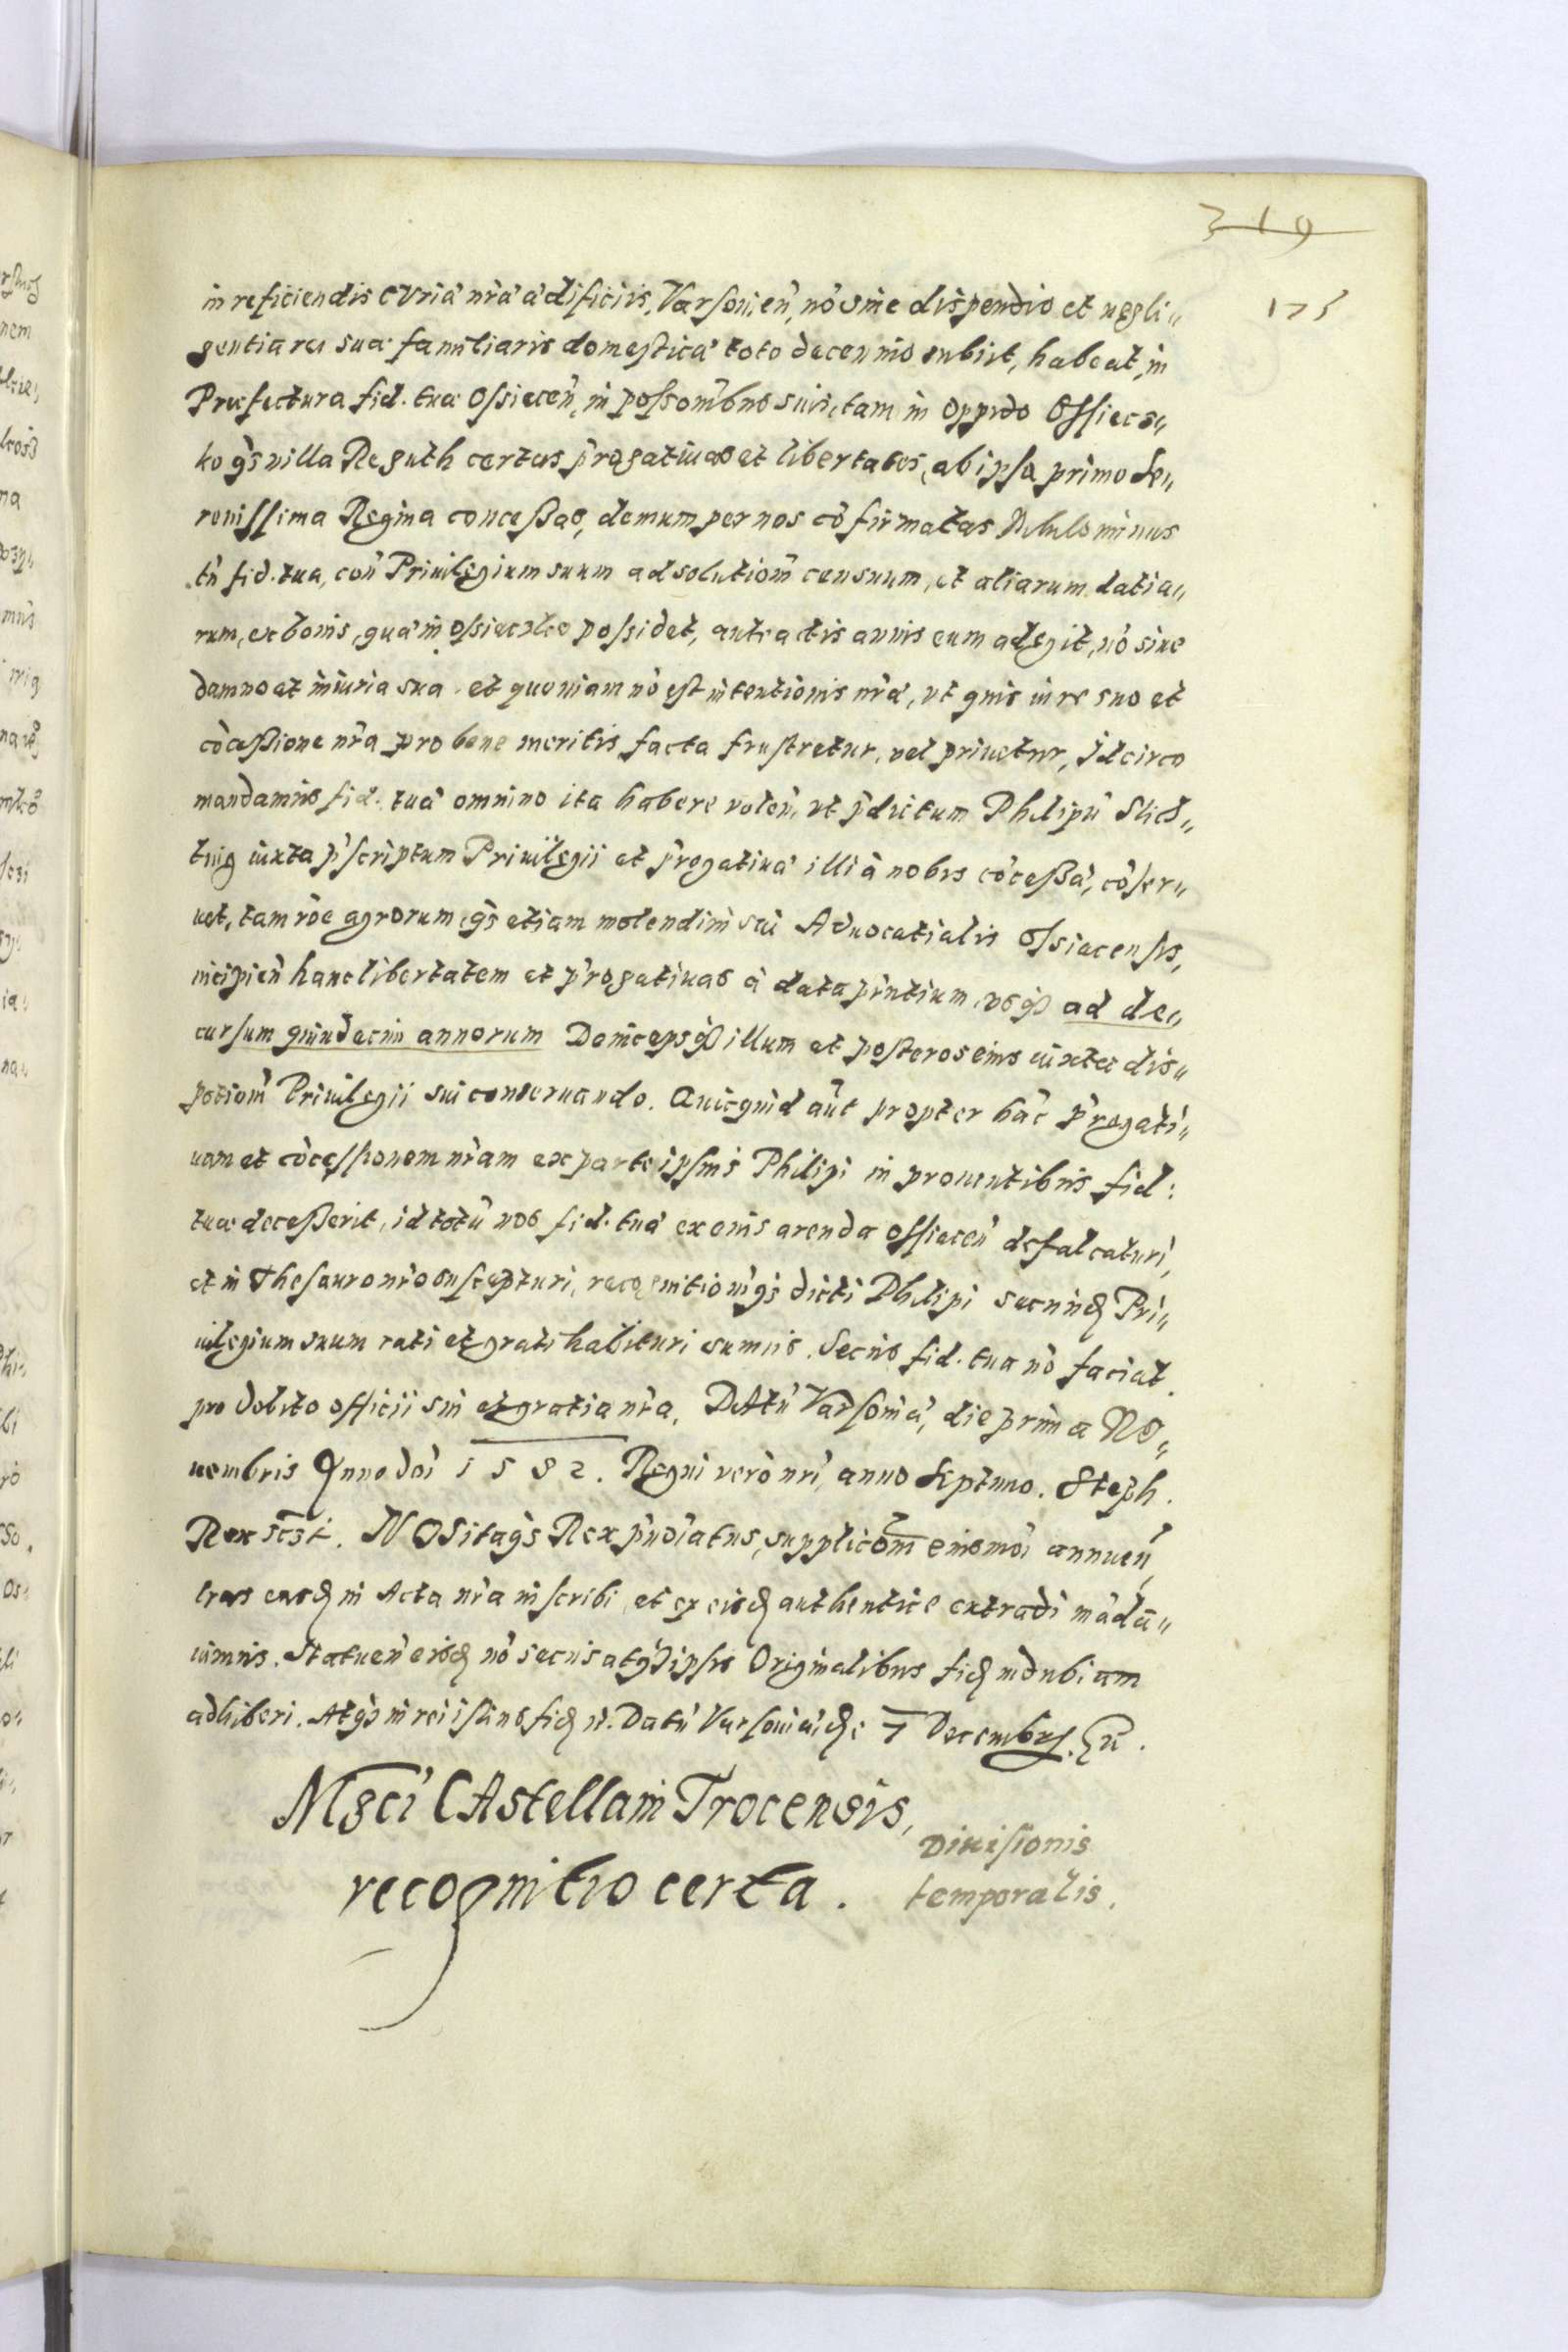 319
175
in reficiendis Curiæ nræ ædificiis, Varsovien̄, nō sine dispendio et negli„
gentia rei suæ familiaris domesticæ toto decennio subiit, habeat, in
Præfectura fid. tuæ Ossiecen̄, in possonibus suis, tam in oppido Ossiecs„
ko qs villa Reguth certas progatiuas et libertates, ab ipsa primo Se„
renissima Regina concessas, demum per nos cōfirmatas Nihilominus
tn̄ fid. tua, con̄ Priuilegium suum ad solutiom̄ censuum, et aliarum datia„
rum, ex bonis, quæ in Ossieczko possidet, antractis annis eum adegit, nō sine
damno et iniuria sua. et quoniam nō est intentionis nræ, ut quis iure suo et
cōcessione nra pro bene meritis facta frustretur, vel priuetur, Idcirco
mandamus fid. tuæ omnino ita habere volen̄, ut pdictum Philipū Slich„
tnig iuxta pscriptum Priuilegii et progatiuæ illi à nobis cōcessæ, cōser„
uet, tam rōe agrorum, qs etiam molendini sui Aduocatialis Ossiacensis,
incipien̄ hanc libertatem et progatiuas à data pntium, usqz ad de„
cursum quindecim annorum Deincepsqz illum et posteros eius iuxta dis„
potiom̄ Priuilegii sui conseruando. Quicquid aūt propter hāc progati„
uam et cōcessionem nram ex parte ipsius Philipi in prouentibus fid:
tuæ decesserit, id totū nos fid. tuæ ex onis arenda Ossiacen̄ defalcaturi,
et in Thesauro nro suscepturi, recognitioniqs dicti Philipi secund Pri„
uilegium suum rati et grati habituri sumus. Secus fid. tua nō faciat.
pro debito officii sui et gratia nra. Datū Varsoniæ, die prima No„
uembris Anno doi 1582. Regni verò nri, anno Septimo. Steph.
Rex sszt. NOS itaqs Rex pnoiatus, supplicom̄ eiusmōi annuen̄,
lras easd in Acta nra inscribi, et ex eisd authentice extradi mādā„
uimus. Statuen̄ eisd nō secus atqz ipsis Originalibus fid indubiam
adhiberi. Atqs in rei istius fid n. Datū Varsouiæ, de 7 Decembrs. Ƹū.
Mgci CAstellani Trocensis,
recognitio certa.
Diuisionis
temporalis.